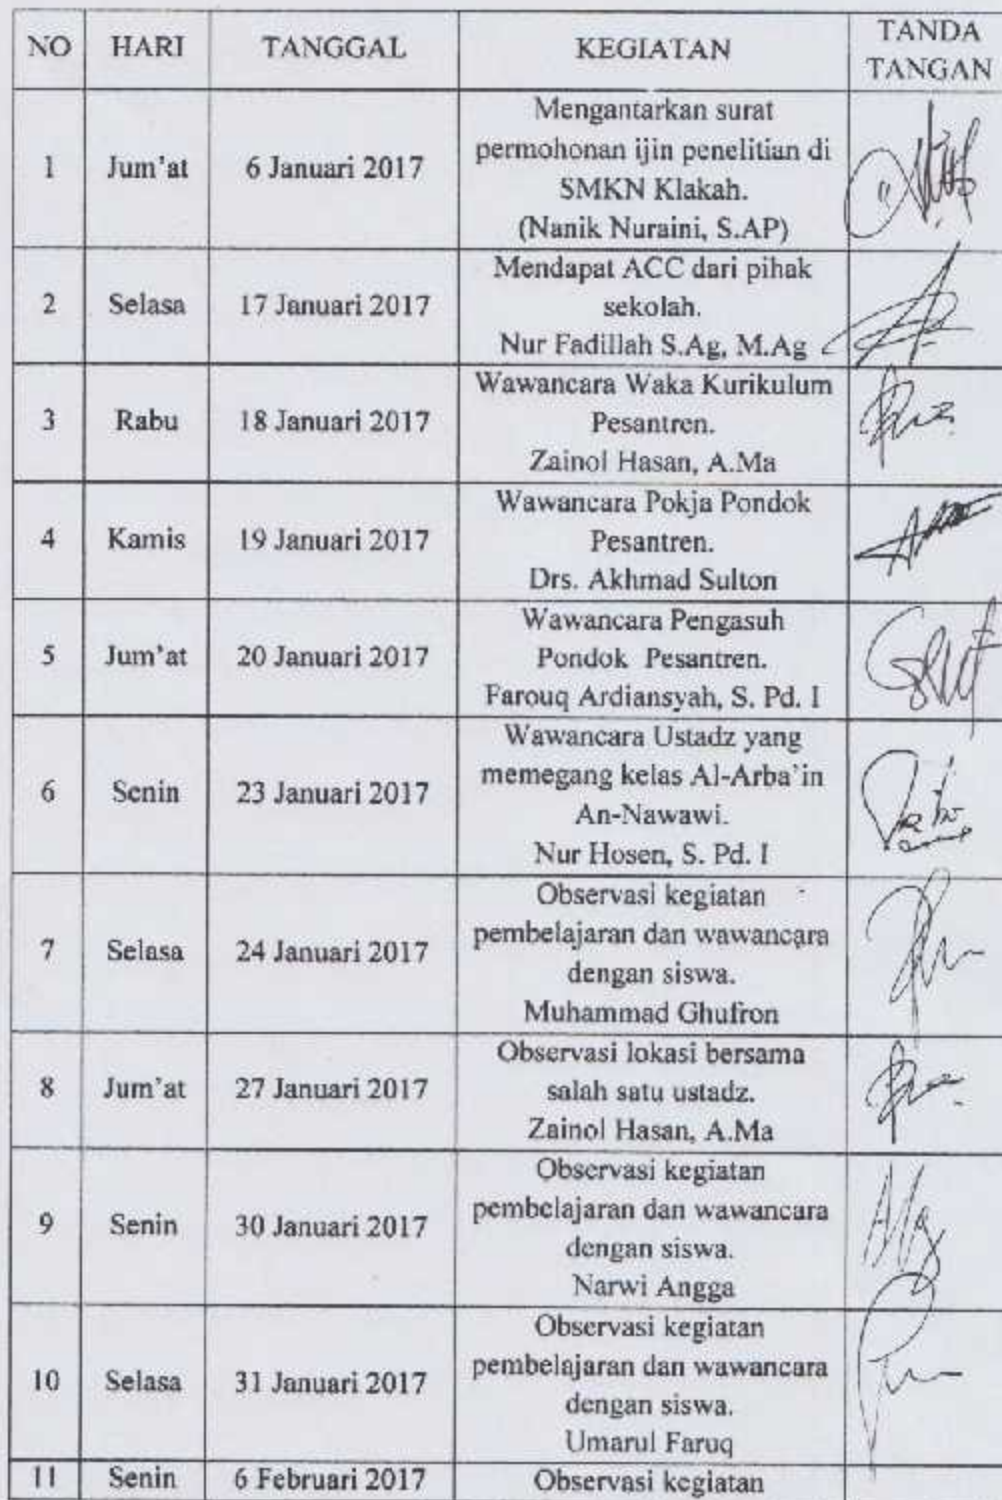 NO HARI TANGGAL KEGIATAN TANDA TANGAN
1 Jum'at 6 Januari 2017 Mengantarkan surat
permohonan ijin penelitian di
SMKN Klakah.
(Nanik Nuraini, S.AP)
2 Selasa 17 Januari 2017 Mendapat ACC dari pihak
sekolah.
Nur Fadillah S.Ag, M.Ag
3 Rabu 18 Januari 2017 Wawancara Waka Kurikulum
Pesantren.
Zainol Hasan, A.Ma
4 Kamis 19 Januari 2017 Wawancara Pokja Pondok
Pesantren.
Drs. Akhmad Sulton
5 Jum'at 20 Januari 2017 Wawancara Pengasuh
Pondok Pesantren.
Farouq Ardiansyah, S. Pd. I
6 Senin 23 Januari 2017 Wawancara Ustadz yang
memegang kelas Al-Arba'in
An-Nawawi.
Nur Hosen, S. Pd. I
7 Selasa 24 Januari 2017 Observasi kegiatan
pembelajaran dan wawancara
dengan siswa.
Muhammad Ghufron
8 Jum'at 27 Januari 2017 Observasi lokasi bersama
salah satu ustadz.
Zainol Hasan, A.Ma
9 Senin 30 Januari 2017 Observasi kegiatan
pembelajaran dan wawancara
dengan siswa.
Narwi Angga
10 Selasa 31 Januari 2017 Observasi kegiatan
pembelajaran dan wawancara
dengan siswa.
Umarul Faruq
11 Senin 6 Februari 2017 Observasi kegiatan